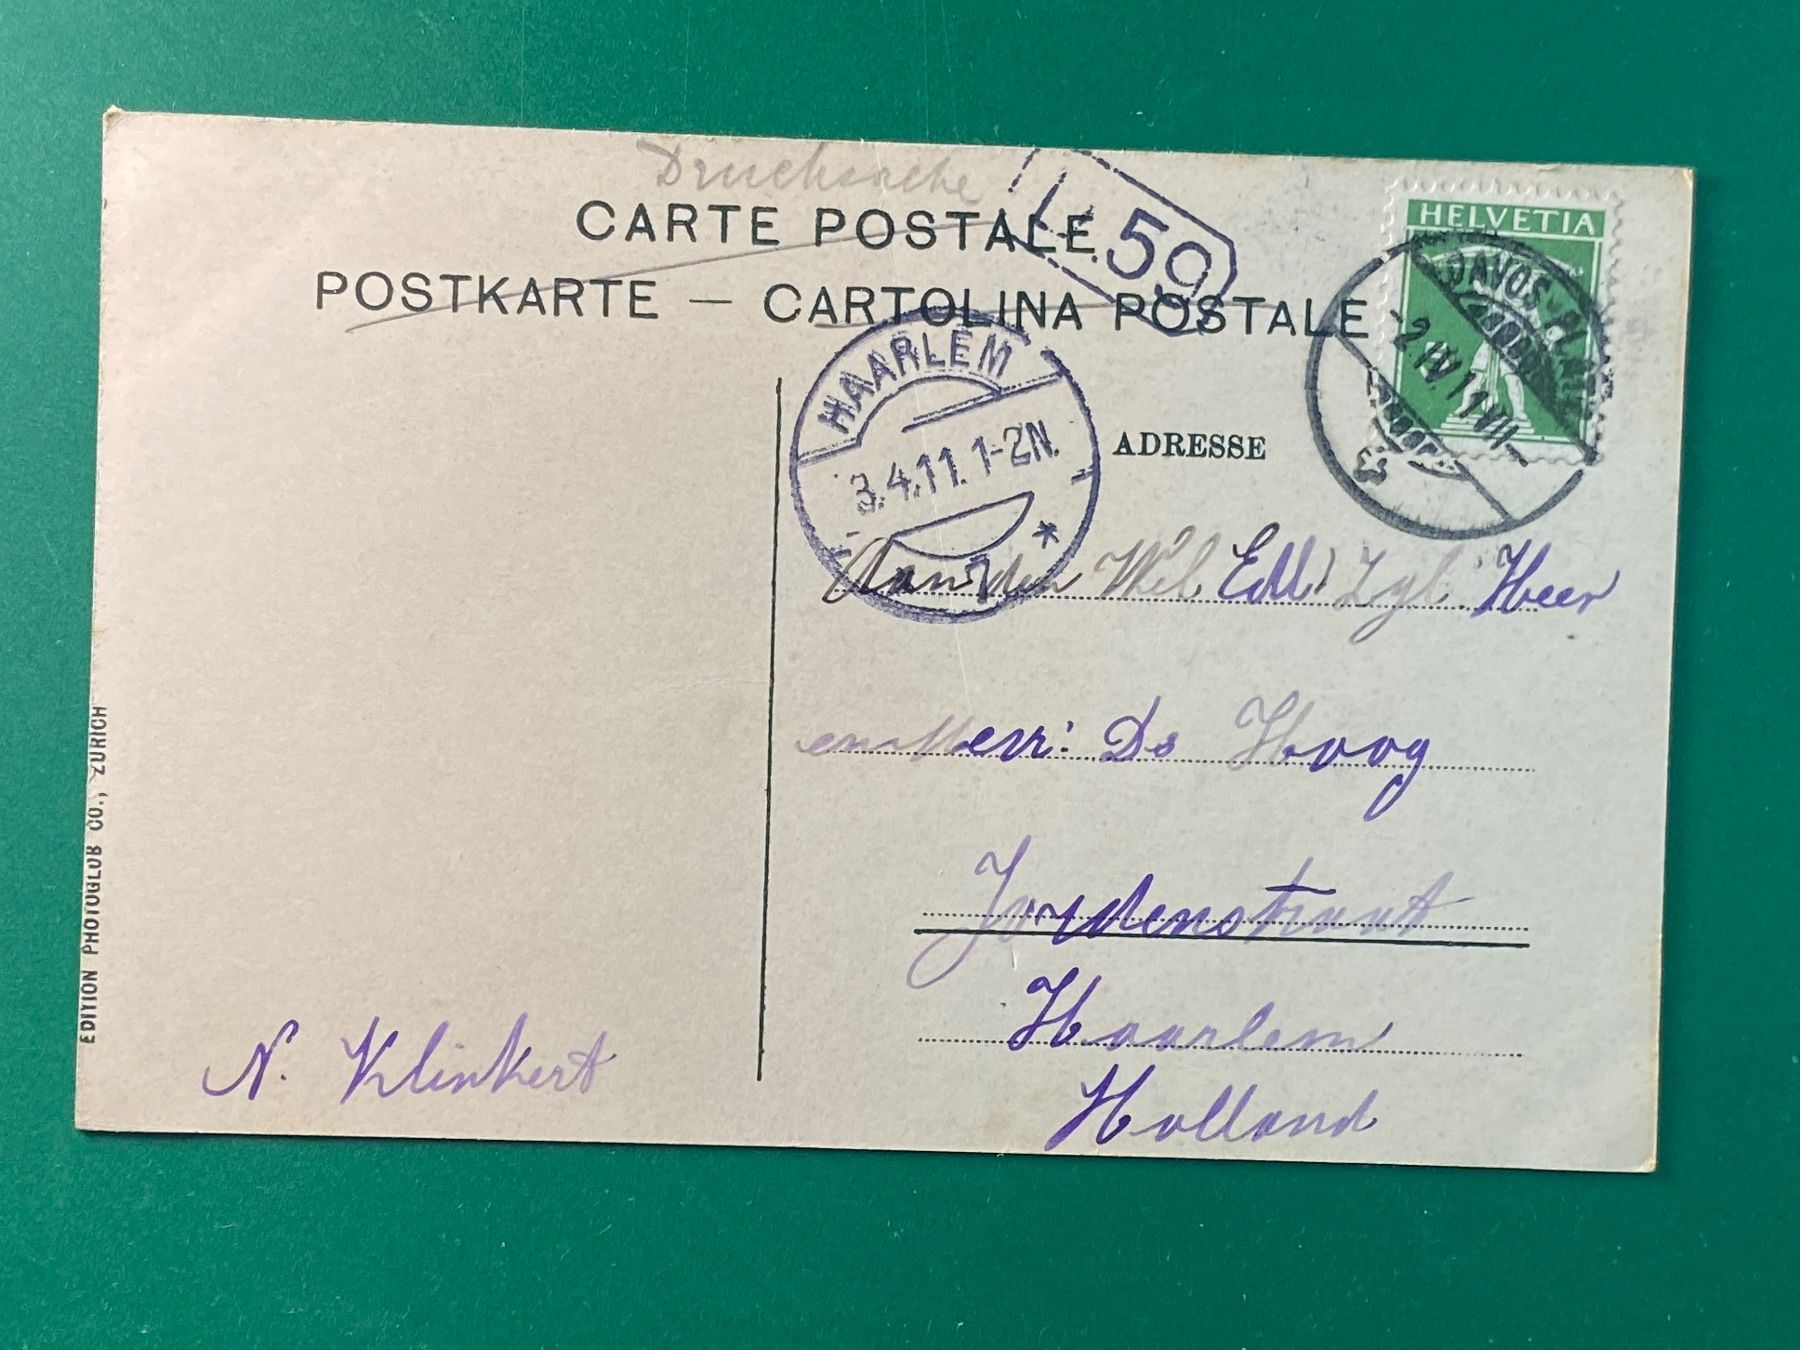 Drucksache
CARTE POSTALE
POSTKARTE — CARTOLINA POSTALE
59
HELVETIA
DAVOS-PLATZ
-2.IV.11.VII-
HAARLEM
3.4.11. 1-2N.
ADRESSE
Aan den Wel Edl Zgl. Heer
en Merr: De Hoog
Jordenstraat
Haarlem
Holland
N. Klinkert
EDITION PHOTOGLOB CO., ZÜRICH